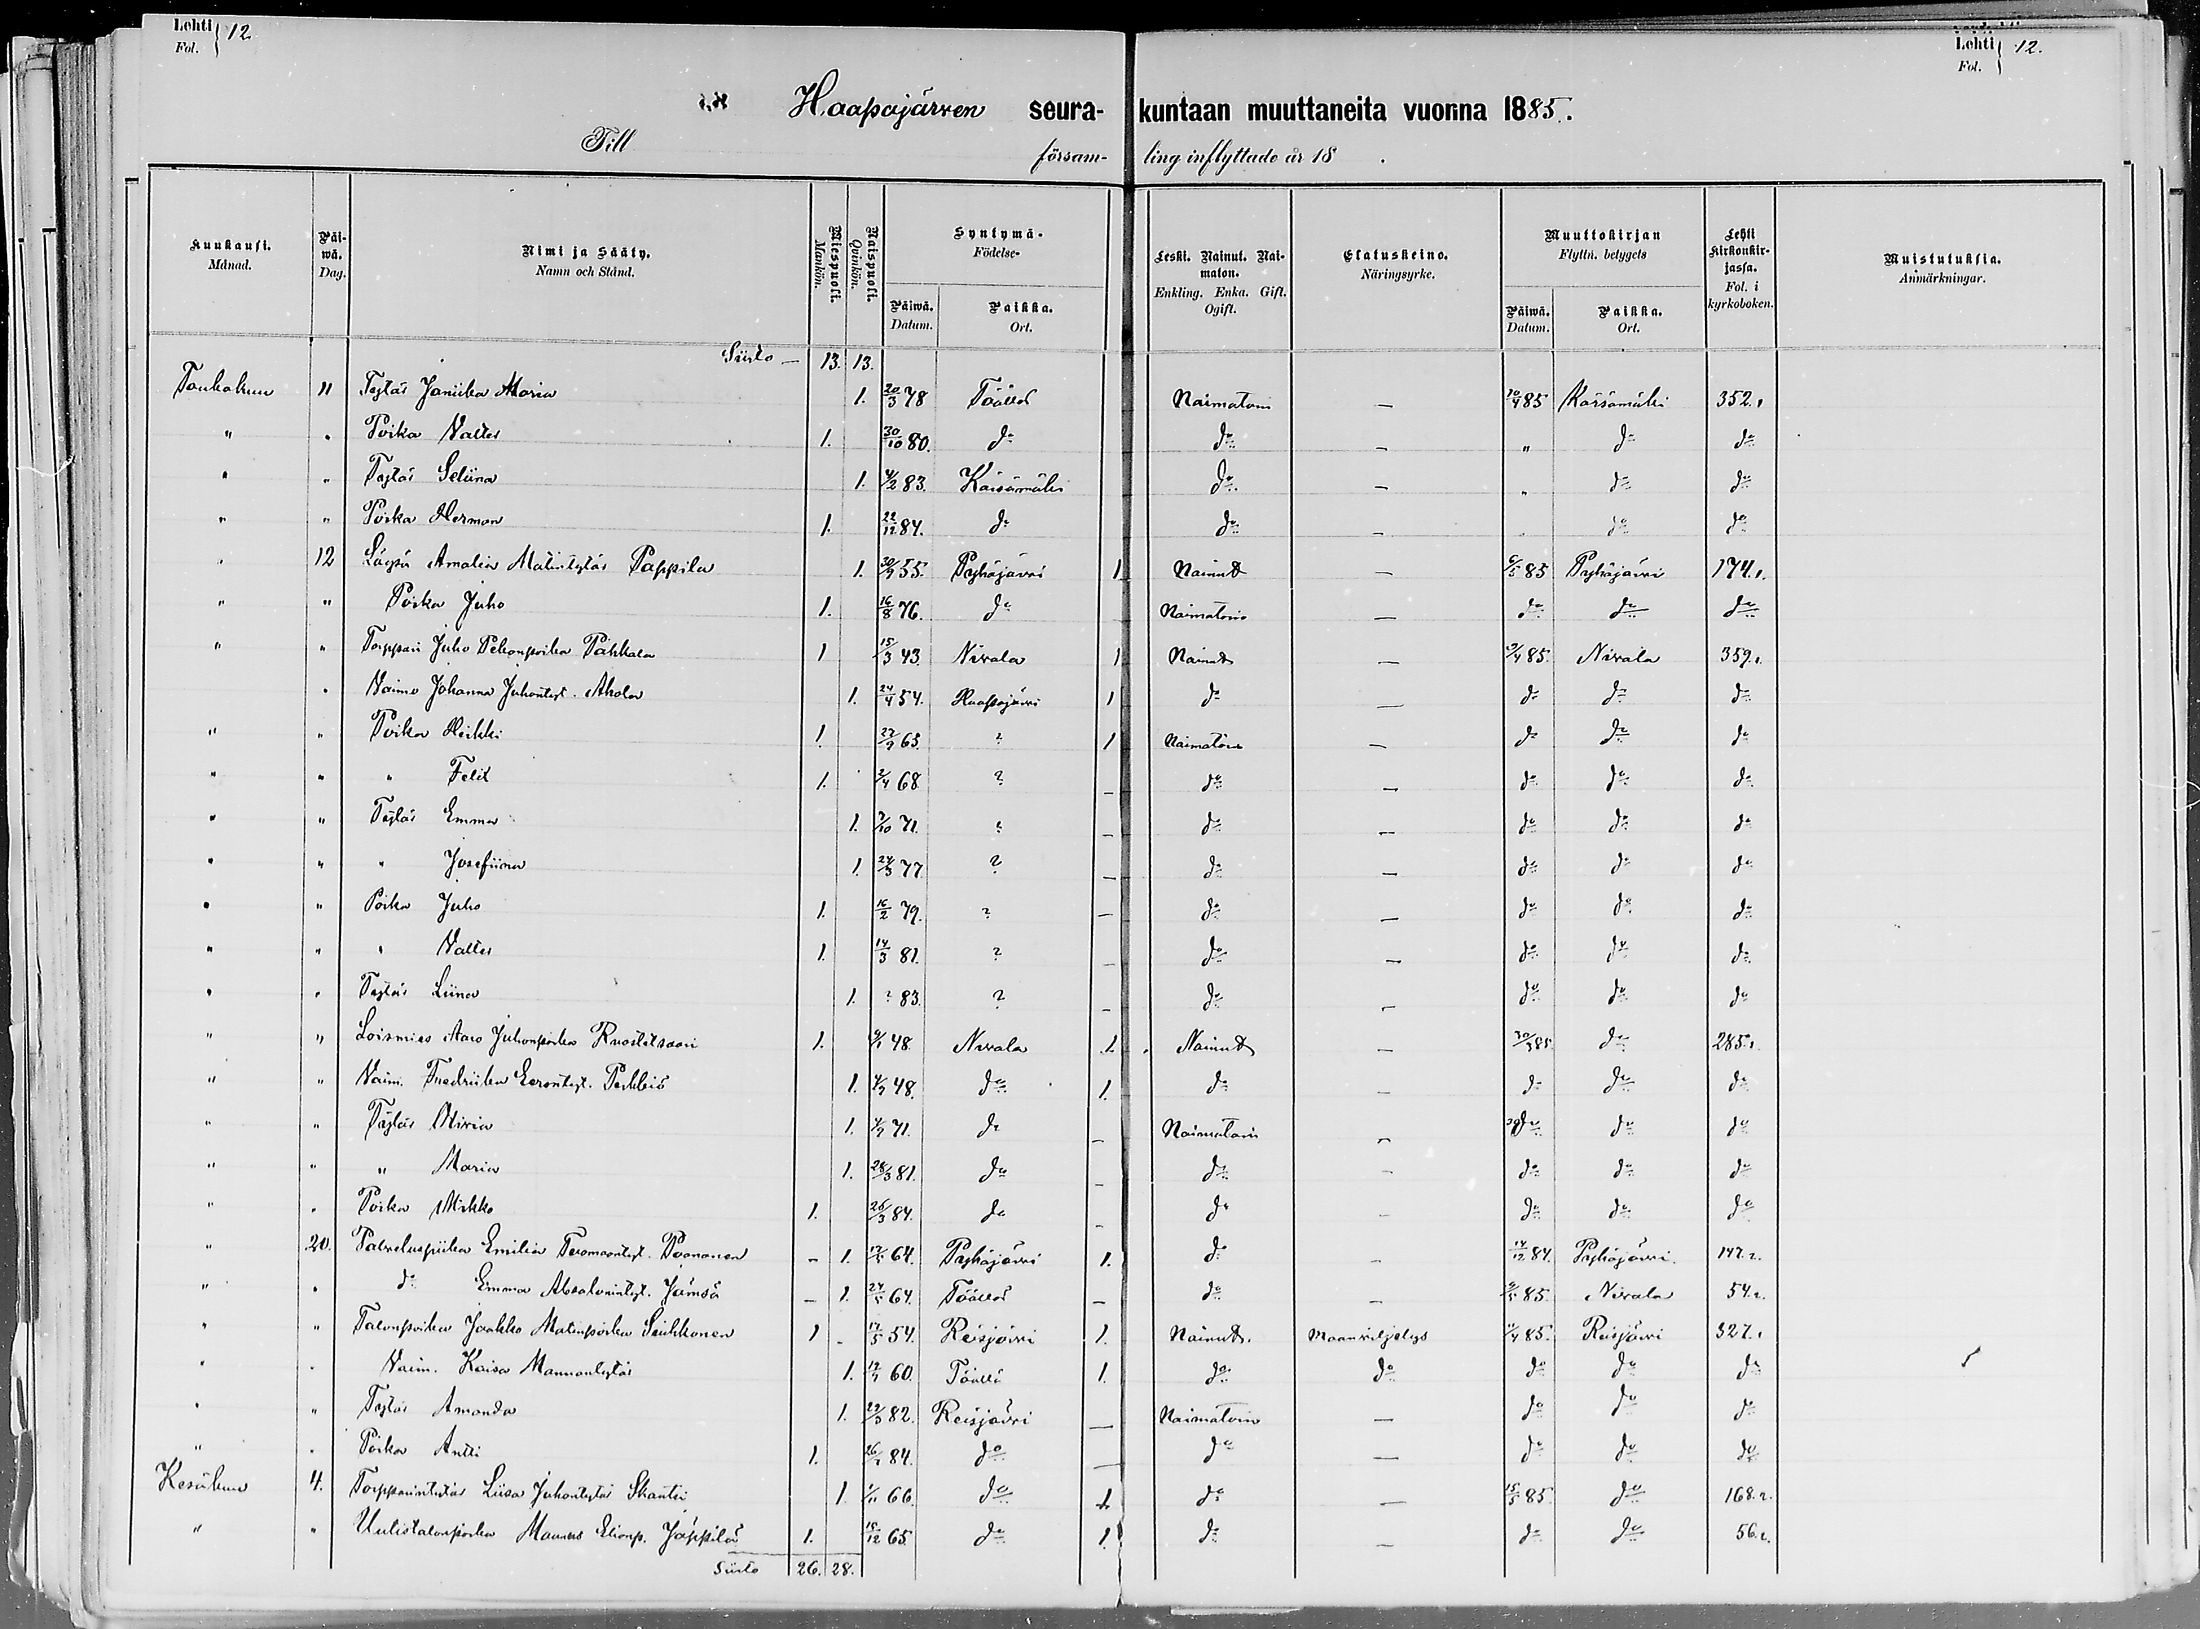 Lehti 12
Fol.
Lehti 12.
Fol.
Haapajärven seura- kuntaan muuttaneita vuonna 1885.
Till försam- ling inflyttade år 18 .
Kuukausi. Månad. Päiwä. Dag. Nimi ja Sääty. Namn och Stånd. Miespuoli. Mankön. Naispuoli. Qvinkön. Syntymä- Födelse- Päiwä. Datum. Paikka. Ort. Leski. Nainut. Naimaton. Enkling. Enka. Gift. Ogift. Elatuskeino. Näringsyrke. Muuttokirjan Flyttn. betygets Päiwä. Datum. Paikka. Ort. Lehti kirkonkirjassa. Fol. i kyrkoboken. Muistutuksia. Anmärkningar.
Siirto — 13. 13.
Toukokuu 11 Tytär Maria 1. 20/3 78 Täällä Naimatoin — 85 Kärsämäki 352.
" " Poika Valter 1. 30/10 80. do do — " do do
" " Tytär Seliina 1. 4/2 83. Kärsämäki do — " do do
" " Poika Herman 1. 22/12 84. do do — " do do
" 12 Amalia Matintytär Pappila 1. 55. Pyhäjärvi 1 Nainut — 6/5 85 Pyhäjärvi 174.
" " Poika Juho 1. 16/8 76. do Naimatoin — do do do
" " Torppari Juho Pekanpoika Pahkala 1 15/3 43. Nivala 1 Nainut — 85. Nivala 359.
" Vaimo Johanna Juhontyt. Ahola 1. 24/4 54. Haapajärvi 1 do — do do do
" " Poika Heikki 1. 65. ? 1 Naimatoin — do do do
" " " Felix 1. 2/4 68 ? — do — do do do
" " Tytär Emma 1. 71. ? — do — do do do
" " " Josefiina 1. 24/3 77 ? — do — do do do
" " Poika Juho 1. 16/2 79. ? — do — do do do
" " " Valter 1. 14/3 81. ? — do — do do do
" " Tytär Liina 1. ? 83. ? — do — do do do
" " Loismies Aaro Juhonpoika 1. 48. Nivala 1. Nainut — 30/3 85 do 285.
" " Vaim. Fredriika Eerontyt. 1. 48. do 1. do — do do do
" " Tytär 1. 71. do — Naimatoin — do do do
" " " Maria 1. 28/3 81. do — do — do do do
" " Poika Mikko 1. 26/3 84. do — do — do do do
" 20. Palveluspiika Emilia 1. 64. Pyhäjärvi 1. do — 14/12 84. Pyhäjärvi 147.
" " do Emma Absalomintyt. Jämsä — 1. 24/5 64. Täällä — do — 85. Nivala 54.
" " Talonpoika Jaakko Matinpoika 1 17/5 54. Reisjärvi 1. Nainut. Maanviljelys 85. Reisjärvi 327.
" " Vaim. Kaisa Mannontytär 1. 60. Täällä 1. do do do do do
" " Tytär Amanda 1. 82. Reisjärvi — Naimatoin — do do do
" " Poika Antti 1. 84. do — do — do do do
Kesäkuu 4. Torpparintytär Liisa Juhontytär 1. 66. do 1 do — 15/5 85. do 168.
" " Uutistalonpoika Jäppilä 1. 15/12 65. do 1. do — do do 56.
Siirto 26. 28.